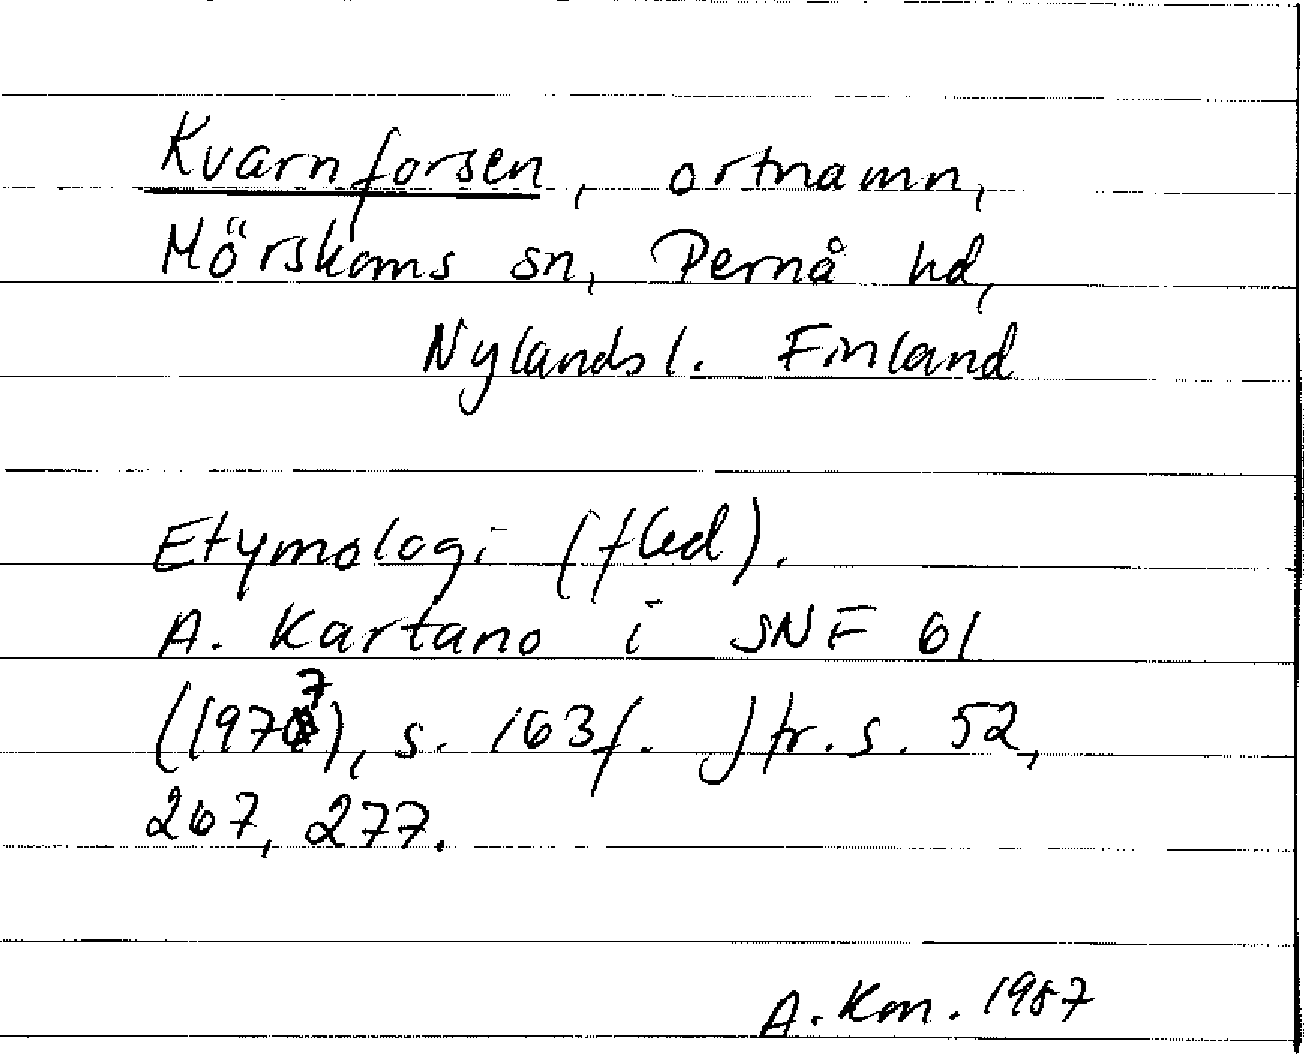 Kvarnforsen, ortnamn,
Mörskoms sn, Pernå hd,
Nylands l. Finland
Etymologi (fled).
A. Kartano i SNF 61
(1977), s. 163f. Jfr. s. 52,
267, 277.
A. Km. 1987